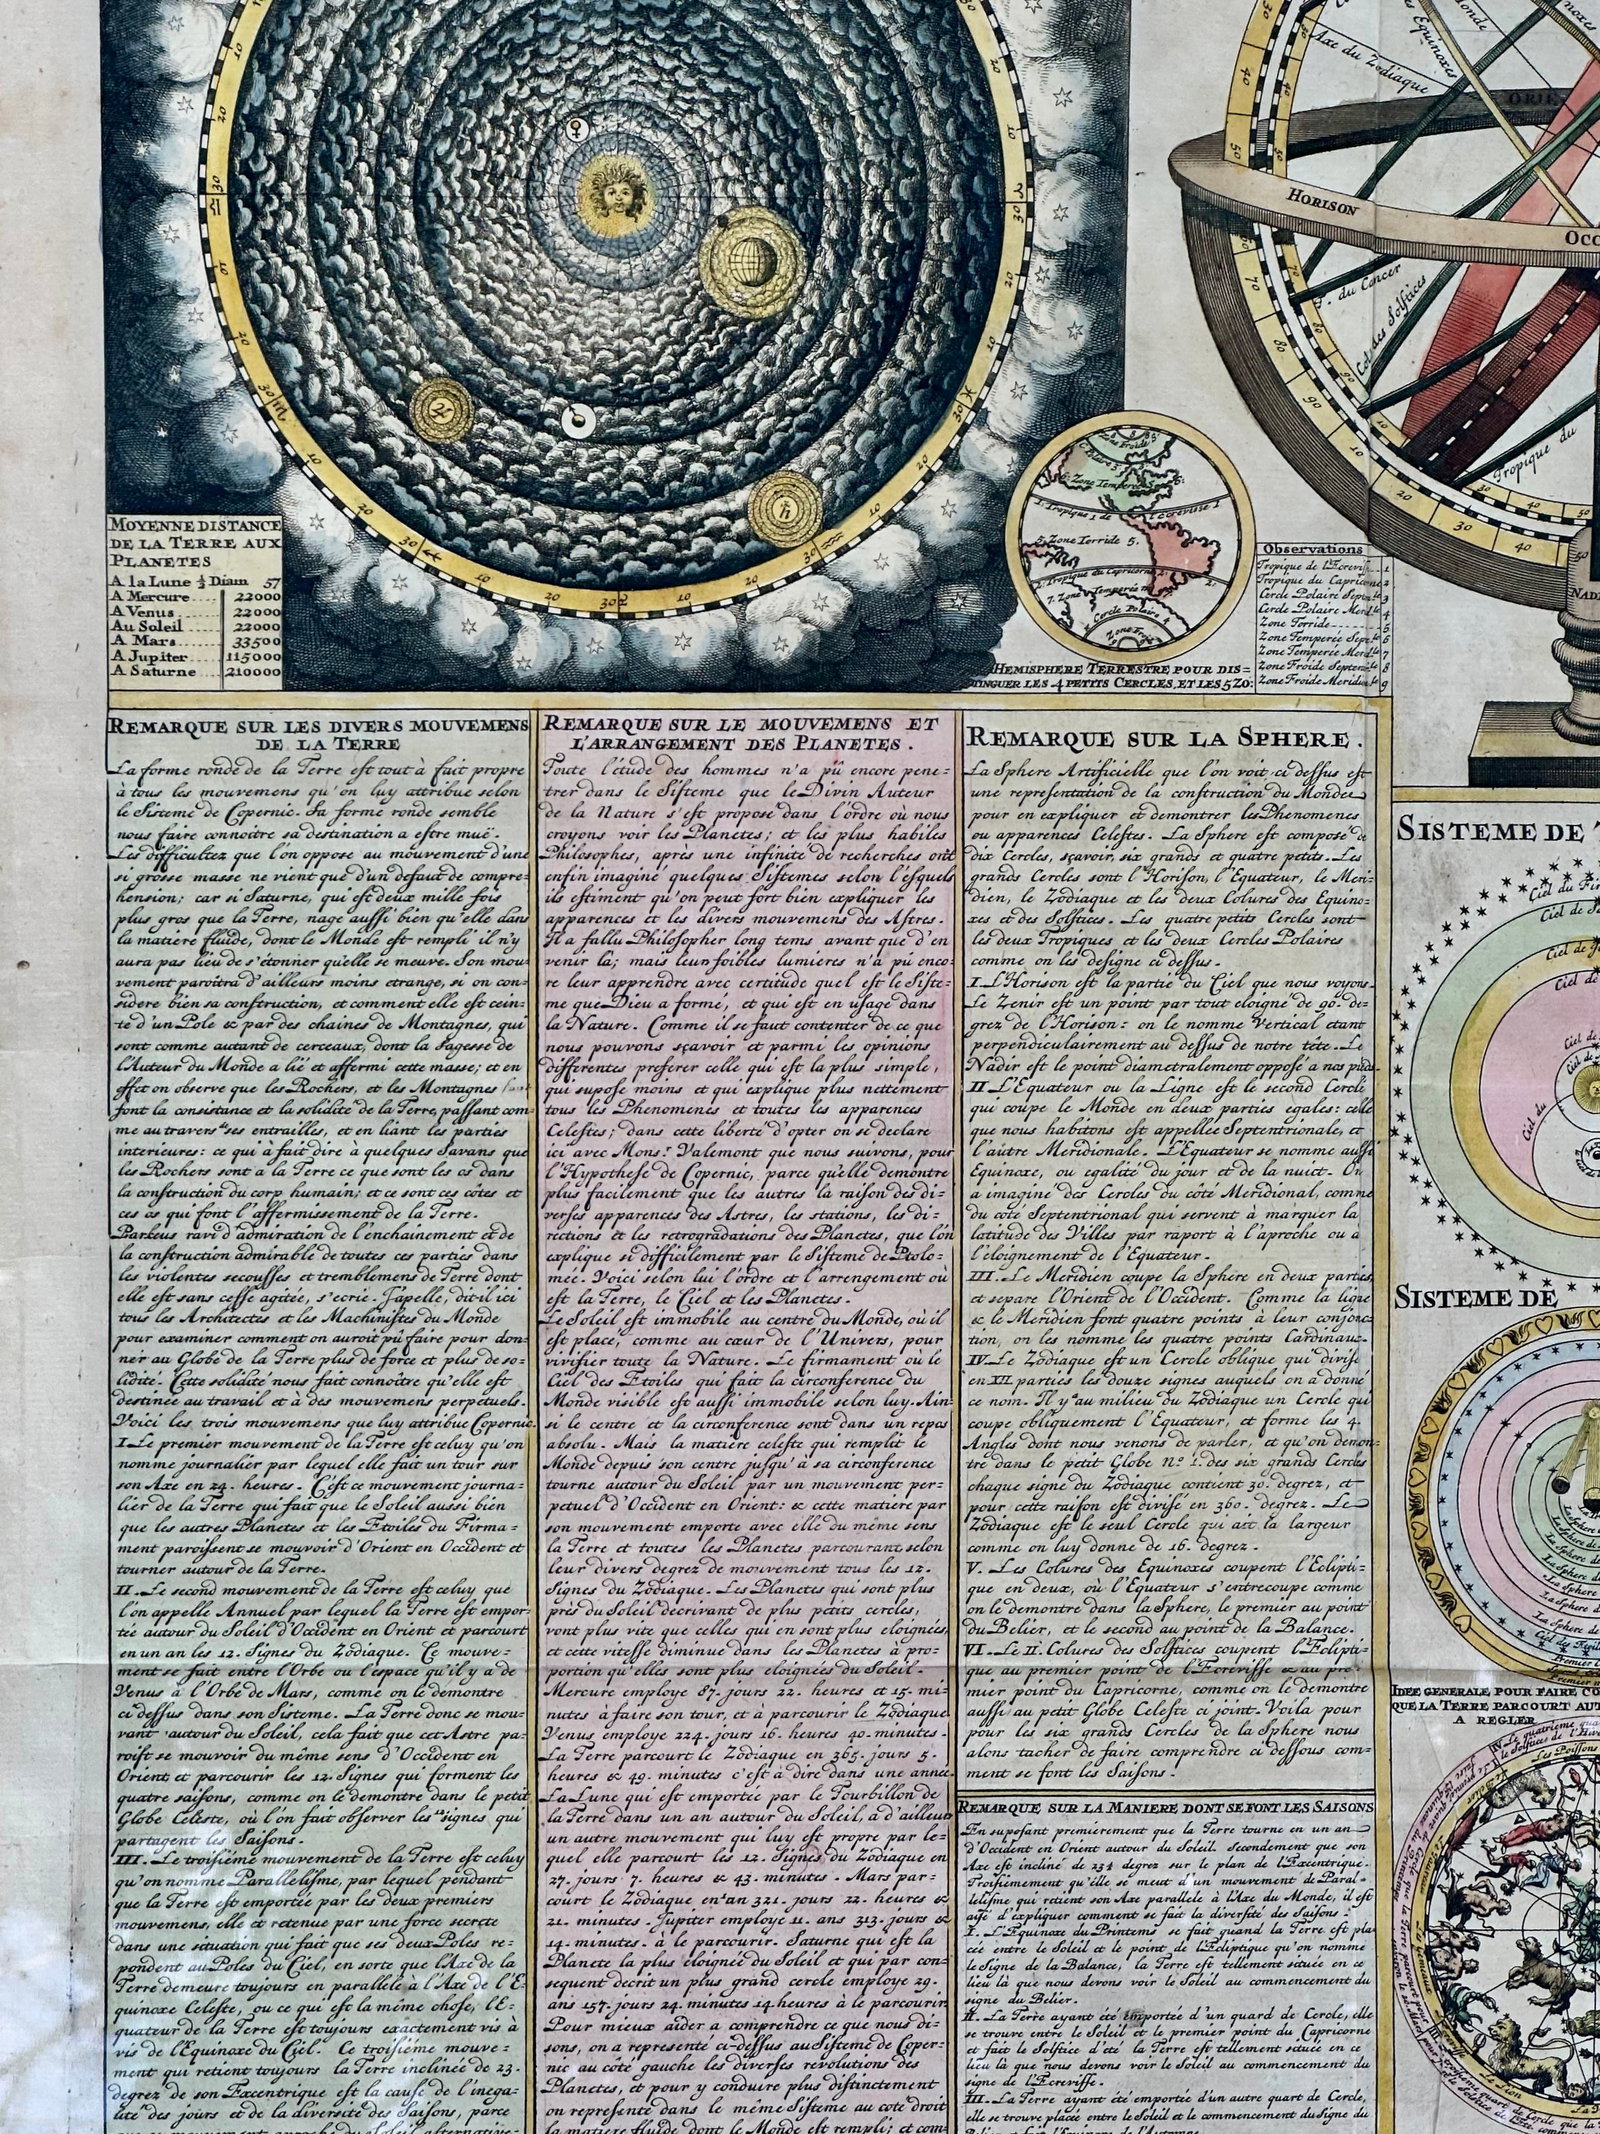 MOYENNE DISTANCE
DE LA TERRE AUX
PLANETES
A la Lune ½ Diam 57
A Mercure 22000
A Venus 22000
Au Soleil 22000
A Mars 33500
A Jupiter 115000
A Saturne 210000
Axe du Zodiaque
HORISON
T. du Cancer
Col. des Solstices
Tropique du
HEMISPHERE TERRESTRE POUR DIS=
TINGUER LES 4 PETITS CERCLES, ET LES 5 ZO:
Observations
Tropique du Capricorne 2
Zone Torride 5
REMARQUE SUR LES DIVERS MOUVEMENS
DE LA TERRE
La forme ronde de la Terre est tout à fait propre
à tous les mouvemens qu'on luy attribue selon
le Sisteme de Copernic. Sa forme ronde semble
nous faire connoitre sa destination a estre mué.
Les difficultez que l'on oppose au mouvement d'une
si grosse masse ne vient que d'un defaut de compre=
hension; car si Saturne, qui est deux mille fois
plus gros que la Terre, nage aussi bien qu'elle dans
la matiere fluide, dont le Monde est rempli il n'y
aura pas lieu de s'étonner qu'elle se meuve. Son mou=
vement paroitra d'ailleurs moins etrange, si on con=
sidere bien sa construction, et comment elle est cein=
te d'un Pole & par des chaines de Montagnes, qui
sont comme autant de cerceaux, dont la sagesse de
l'Auteur du Monde a lié et affermi cette masse; et en
effet on observe que les Rochers, et les Montagnes
font la consistance et la solidité de la Terre, passant com=
me au travers de ses entrailles, et en liant les parties
interieures: ce qui à fait dire à quelques Savans que
les Rochers sont a la Terre ce que sont les os dans
la construction du corp humain; et ce sont ces côtes et
ces os qui font l'affermissement de la Terre.
Parkeus ravi d'admiration de l'enchainement et de
la construction admirable de toutes ces parties dans
les violentes secousses et tremblemens de Terre dont
elle est sans cesse agitée, s'ecrie. J'apelle, dit-il ici
tous les Architectes et les Machinistes du Monde
pour examiner comment on auroit pû faire pour don=
ner au Globe de la Terre plus de force et plus de so=
lidité. Cette solidité nous fait connoître qu'elle est
destinée au travail et à des mouvemens perpetuels.
Voici les trois mouvemens que luy attribue Copernic.
I. Le premier mouvement de la Terre est celuy qu'on
nomme journalier par lequel elle fait un tour sur
son Axe en 24. heures. C'est ce mouvement journa=
lier de la Terre qui fait que le Soleil aussi bien
que les autres Planetes et les Etoiles du Firma=
ment paroissent se mouvoir d'Orient en Occident et
tourner autour de la Terre.
II. Le second mouvement de la Terre est celuy que
l'on appelle Annuel par lequel la Terre est empor=
tée autour du Soleil d'Occident en Orient et parcourt
en un an les 12. Signes du Zodiaque. Ce mouve=
ment se fait entre l'Orbe ou l'espace qu'il y a de
Venus à l'Orbe de Mars, comme on le démontre
ci dessus dans son Sisteme. La Terre donc se mou=
vant autour du Soleil, cela fait que cet Astre pa=
roist se mouvoir du même sens d'Occident en
Orient et parcourir les 12. Signes qui forment les
quatre saisons, comme on le demontre dans le petit
Globe Celeste, où l'on fait observer les 12 signes qui
partagent les Saisons.
III. Le troisiéme mouvement de la Terre est celuy
qu'on nomme Parallelisme, par lequel pendant
que la Terre est emportée par les deux premiers
mouvemens, elle et retenue par une force secrete
dans une situation qui fait que ses deux Poles re=
pondent au Poles du Ciel, en sorte que l'Axe de la
Terre demeure toujours en parallele à l'Axe de l'E=
quinoxe Celeste, ou ce qui est la même chose, l'E=
quateur de la Terre est toujours exactement vis à
vis de l'Equinoxe du Ciel. Ce troisiéme mouve=
ment qui retient toujours la Terre inclinée de 23.
degrez de son Excentrique est la cause de l'inega=
lité des jours et de la diversité des Saisons, parce
REMARQUE SUR LE MOUVEMENS ET
L'ARRANGEMENT DES PLANETES.
Toute l'étude des hommes n'a pû encore pene=
trer dans le Sisteme que le Divin Auteur
de la Nature s'est proposé dans l'ordre où nous
croyons voir les Planetes; et les plus habiles
Philosophes, après une infinité de recherches ont
enfin imaginé quelques Sistemes selon l'ésquels
ils estiment qu'on peut fort bien expliquer les
apparences et les divers mouvemens des Astres.
Il a fallu Philosopher long tems avant que d'en
venir là; mais leurs foibles lumieres n'a pû enco=
re leur apprendre avec certitude quel est le Siste=
me que Dieu a formé, et qui est en usage dans
la Nature. Comme il se faut contenter de ce que
nous pouvons sçavoir et parmi les opinions
differentes preferer celle qui est la plus simple,
qui supose moins et qui explique plus nettement
tous les Phenomenes et toutes les apparences
Celestes; dans cette liberté d'opter on se declare
ici avec Mons: Valemont que nous suivons, pour
l'Hypothese de Copernic, parce qu'elle demontre
plus facilement que les autres la raison des di=
verses apparences des Astres, les stations, les di=
rections et les retrogradations des Planetes, que l'on
explique si difficilement par le Sisteme de Ptolo=
mée. Voici selon lui l'ordre et l'arrengement où
est la Terre, le Ciel et les Planetes.
Le Soleil est immobile au centre du Monde, où il
est placé, comme au cœur de l'Univers, pour
vivifier toute la Nature. Le firmament où le
Ciel des Etoiles qui fait la circonference du
Monde visible est aussi immobile selon luy. Ain=
si le centre et la circonference sont dans un repos
absolu. Mais la matiere celeste qui remplit le
Monde depuis son centre jusqu'à sa circonference
tourne autour du Soleil par un mouvement per=
petuel d'Occident en Orient: & cette matiere par
son mouvement emporte avec elle du même sens
la Terre et toutes les Planetes parcourant selon
leur divers degrez de mouvement tous les 12.
Signes du Zodiaque. Les Planetes qui sont plus
près du Soleil decrivant de plus petits cercles,
vont plus vite que celles qui en sont plus eloignées,
et cette vitesse diminue dans les Planetes à pro=
portion qu'elles sont plus eloignées du Soleil.
Mercure employe 87. jours 22. heures et 15. mi=
nutes à faire son tour, et à parcourir le Zodiaque.
Venus employe 224. jours 16. heures 40. minutes.
La Terre parcourt le Zodiaque en 365. jours 5.
heures & 49. minutes c'est à dire dans une année.
La Lune qui est emportée par le Tourbillon de
la Terre dans un an autour du Soleil, a d'ailleurs
un autre mouvement qui luy est propre par le=
quel elle parcourt les 12. Signes du Zodiaque en
27. jours 7. heures & 43. minutes. Mars par=
court le Zodiaque en un an 321. jours 22. heures &
21. minutes. Jupiter employe 11. ans 313. jours &
14. minutes. à le parcourir. Saturne qui est la
Planete la plus eloignée du Soleil et qui par con=
sequent decrit un plus grand cercle employe 29.
ans 157. jours 24. minutes 14 heures à le parcourir.
Pour mieux aider a comprendre ce que nous di=
sons, on a representé ci-dessus au Sisteme de Coper=
nic au coté gauche les diverses revolutions des
Planetes, et pour y conduire plus distinctement
on represente dans le même Sisteme au coté droit
la matiere fluide dont le Monde est rempli; et com=
REMARQUE SUR LA SPHERE.
La Sphere Artificielle que l'on voit ci dessus est
une representation de la construction du Monde
pour en expliquer et demontrer les Phenomenes
ou apparences Celestes. La Sphere est composé de
dix Cercles, sçavoir, six grands et quatre petits. Les
grands Cercles sont l'Horison, l'Equateur, le Meri=
dien, le Zodiaque et les deux Colures des Equino=
xes et des Solstices. Les quatre petits Cercles sont
les deux Tropiques et les deux Cercles Polaires
comme on les designe ci dessus.
I. L'Horison est la partie du Ciel que nous voyons.
Le Zenir est un point par tout eloigné de 90. de=
grez de l'Horison: on le nomme Vertical etant
perpendiculairement au dessus de notre tête. Le
Nadir est le point diametralement opposé a nos pieds.
II. L'Equateur ou la Ligne est le second Cercle
qui coupe le Monde en deux parties egales: celle
que nous habitons est appellée Septentrionale, et
l'autre Meridionale. L'Equateur se nomme aussi
Equinoxe, ou egalité du jour et de la nuict. On
a imaginé des Cercles du côté Meridional, comme
du coté Septentrional qui servent à marquer la
latitude des Villes par raport à l'aproche ou à
l'eloignement de l'Equateur.
III. Le Meridien coupe la Sphere en deux parties,
et separe l'Orient de l'Occident. Comme la ligne
& le Meridien font quatre points à leur conjonc=
tion, on les nomme les quatre points Cardinaux.
IV. Le Zodiaque est un Cercle oblique qui divise
en XII parties les douze signes auquels on a donné
ce nom. Il y a au milieu du Zodiaque un Cercle qui
coupe obliquement l'Equateur, et forme les 4.
Angles dont nous venons de parler, et qu'on demon=
tre dans le petit Globe N.º 1. des six grands Cercles
chaque signe du Zodiaque contient 30. degrez, et
pour cette raison est divisé en 360. degrez. Le
Zodiaque est le seul Cercle qui ait la largeur
comme on luy donne de 16. degrez.
V. Les Colures des Equinoxes coupent l'Eclipti=
que en deux, où l'Equateur s'entrecoupe comme
on le demontre dans la Sphere, le premier au point
du Belier, et le second au point de la Balance.
VI. Le II. Colures des Solstices coupent l'Eclipti=
que au premier point de l'Ecrevisse & au pre=
mier point du Capricorne, comme on le demontre
aussi au petit Globe Celeste ci joint. Voila pour
pour les six grands Cercles de la Sphere nous
alons tacher de faire comprendre ci dessous com=
ment se font les Saisons.
REMARQUE SUR LA MANIERE DONT SE FONT LES SAISONS
En suposant premiérement que la Terre tourne en un an
d'Occident en Orient autour du Soleil. Secondement que son
Axe est incliné de 23½ degrez sur le plan de l'Excentrique.
Troisiémement qu'elle se meut d'un mouvement de Paral=
lelisme qui retient son Axe parallele à l'Axe du Monde, il est
aisé d'expliquer comment se fait la diversité des Saisons:
I. L'Equinoxe du Printems se fait quand la Terre est pla=
cée entre le Soleil et le point de l'Ecliptique qu'on nomme
le Signe de la Balance, la Terre est tellement située en ce
lieu là que nous devons voir le Soleil au commencement du
signe du Belier.
II. La Terre ayant été emportée d'un quard de Cercle, elle
se trouve entre le Soleil et le premier point du Capricorne
et fait le Solstice d'été la Terre est tellement située en ce
lieu là que nous devons voir le Soleil au commencement du
signe de l'Ecrevisse.
III. La Terre ayant été emportée d'un autre quart de Cercle,
elle se trouve placée entre le Soleil et le commencement du Signe du
SISTEME DE
Ciel du
SISTEME DE
IDEE GENERALE POUR FAIRE
QUE LA TERRE PARCOURT
A REGLER
Les Poissons
Le Lion